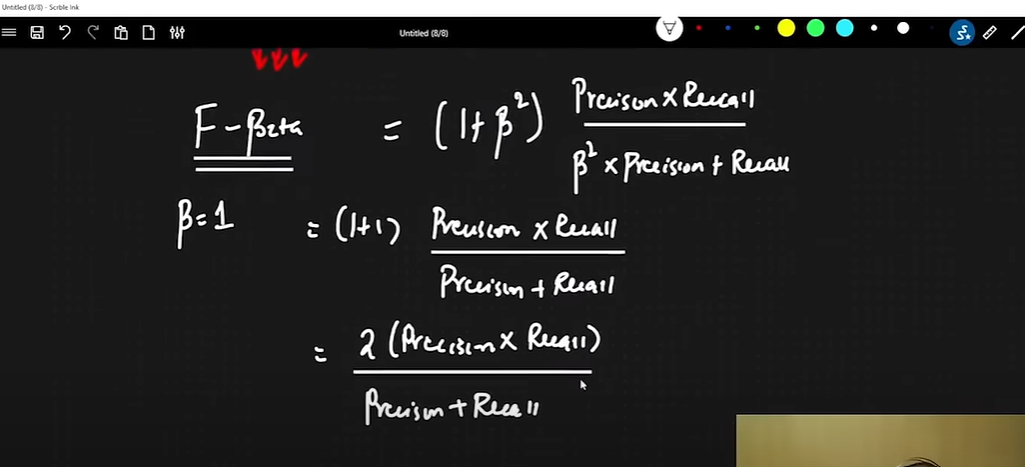 Untitled (8/8) - Scrble Ink
Untitled (8/8)
F-Beta = (1+β²) Precision × Recall / β² × Precision + Recall
β=1 = (1+1) Precision × Recall / Precision + Recall
= 2 (Precision × Recall) / Precision + Recall